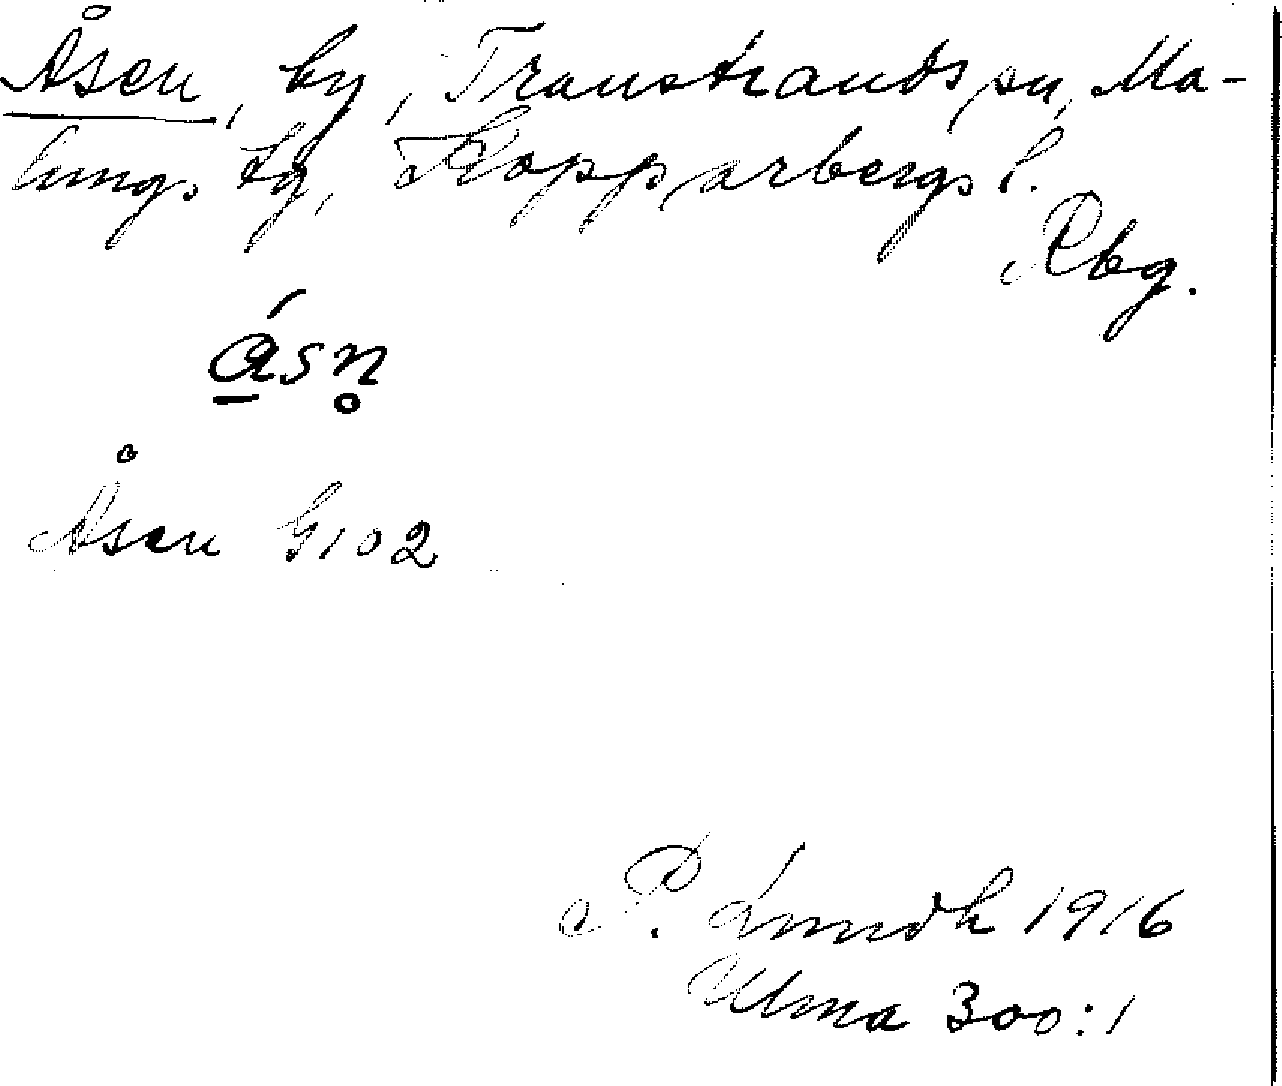 Åsen, by, Transtrands sn, Ma-
lungs tg, Kopparbergs l.
Rbg.
ásn̥
Åsen G102
P. Lundh 1916
Ulma 300:1